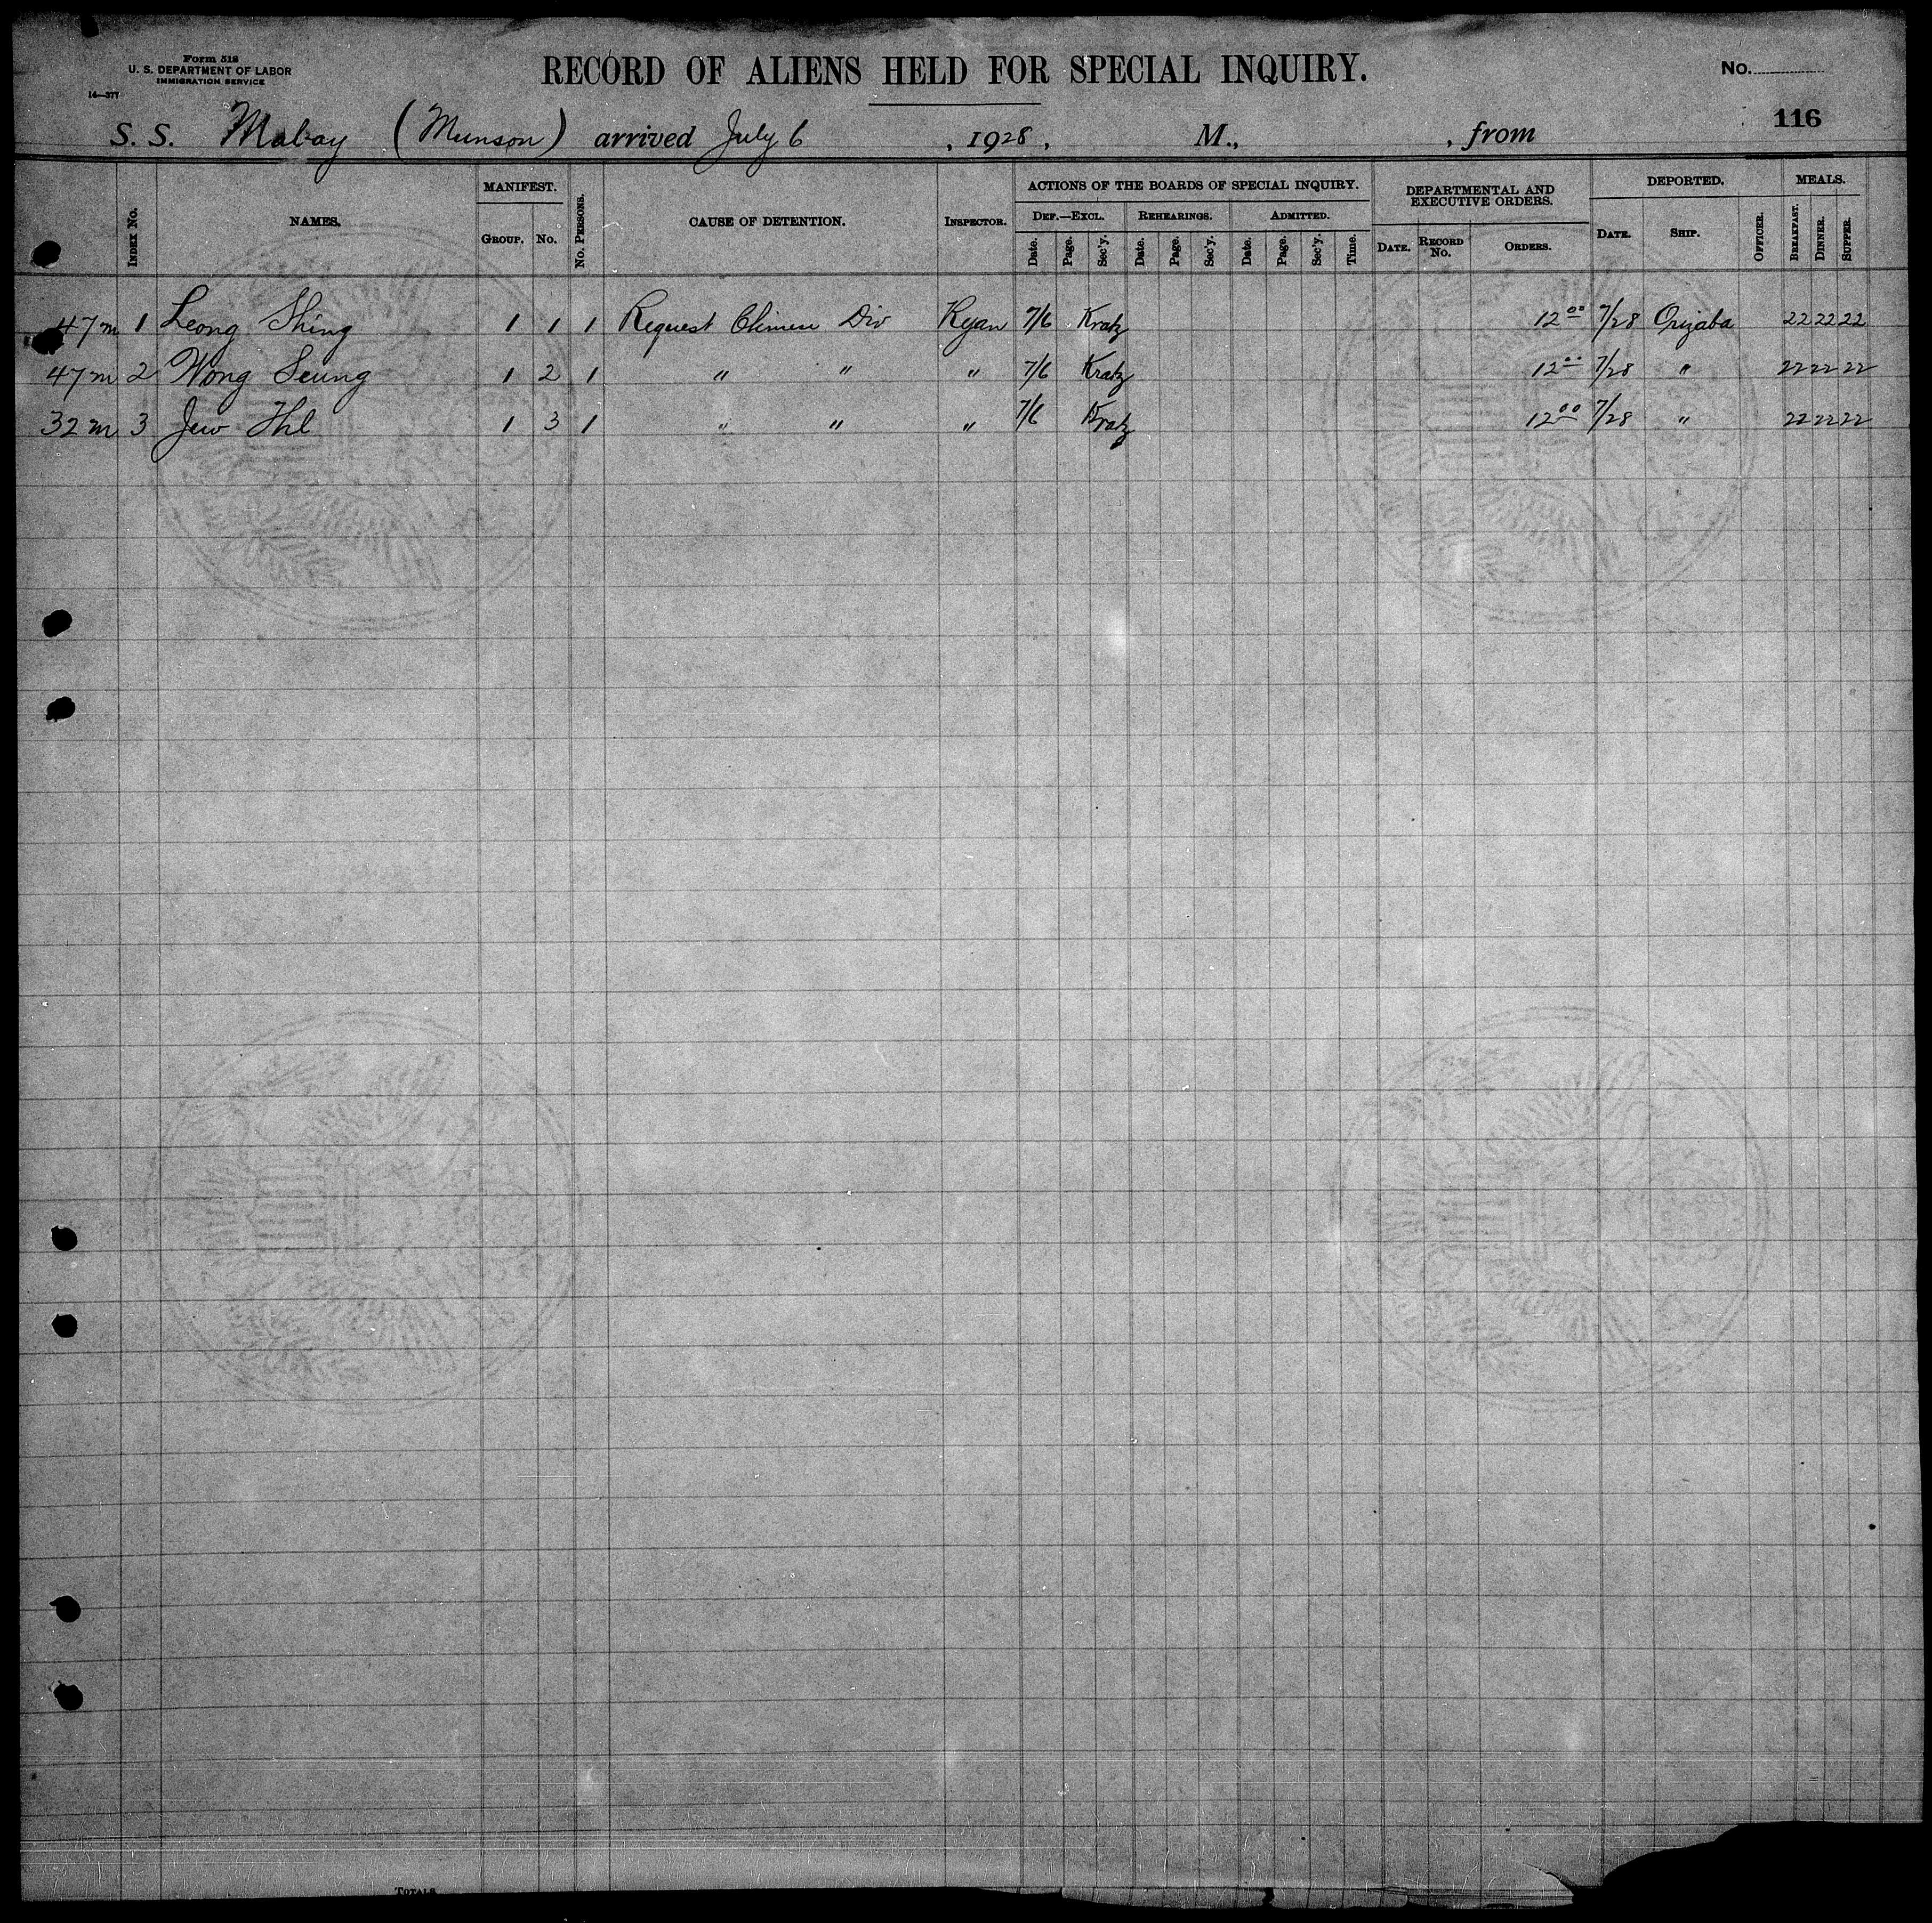 Form 518
U. S. DEPARTMENT OF LABOR
IMMIGRATION SERVICE
14—377
RECORD OF ALIENS HELD FOR SPECIAL INQUIRY.
No.
116
S. S. Mabay (Munson) arrived July 6, 1928, M., , from
INDEX No. NAMES. MANIFEST. GROUP. No. No. PERSONS. CAUSE OF DETENTION. INSPECTOR. ACTIONS OF THE BOARDS OF SPECIAL INQUIRY. DEF.—EXCL. Date. Page. Sec'y. REHEARINGS. Date. Page. Sec'y. ADMITTED. Date. Page. Sec'y. Time. DEPARTMENTAL AND EXECUTIVE ORDERS. DATE. RECORD No. ORDERS. DEPORTED. DATE. SHIP. OFFICER. MEALS. BREAKFAST. DINNER. SUPPER.
47 m 1 Leong Shing 1 1 1 Request Chinese Div Ryan 7/6 Kratz 12 00 7/28 Orizaba 22 22 22
47 m 2 Wong Seung 1 2 1 " " " 7/6 Kratz 12 00 7/28 " 22 22 22
32 m 3 Jew 1 3 1 " " " 7/6 Kratz 12 00 7/28 " 22 22 22
TOTALS